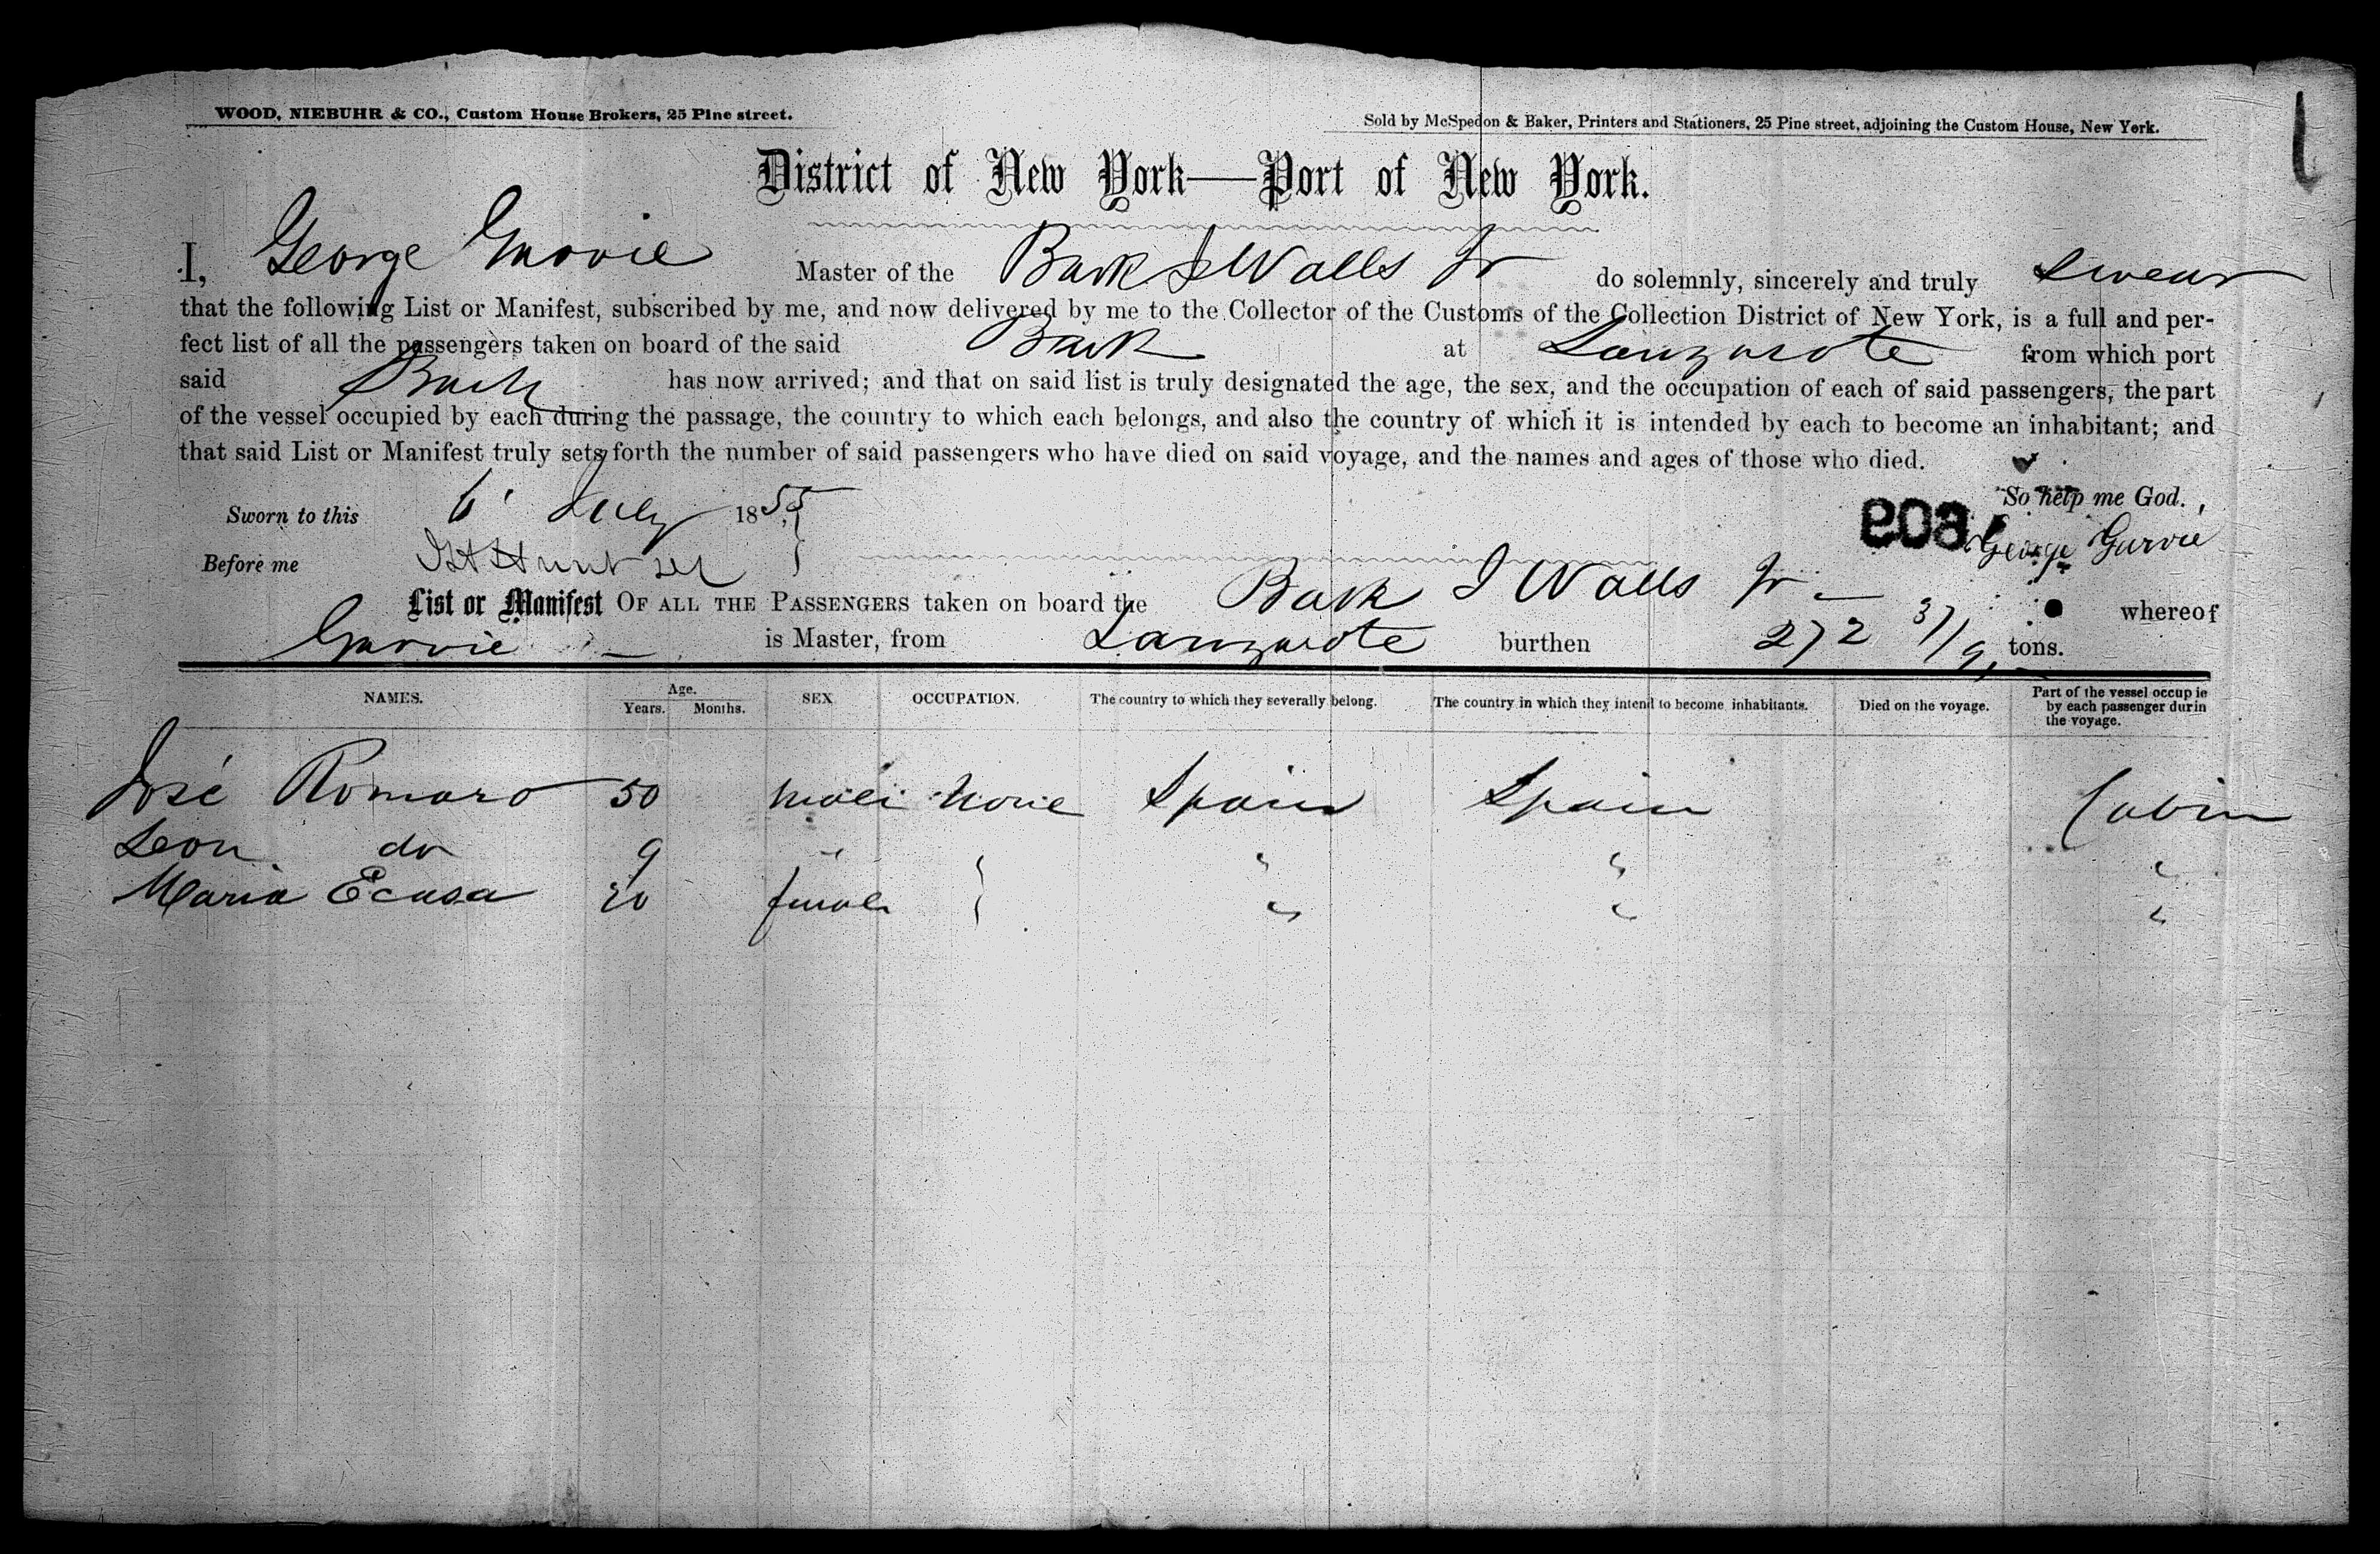 WOOD, NIEBUHR & CO., Custom House Brokers, 25 Pine street.
Sold by McSpedon & Baker, Printers and Stationers, 25 Pine street, adjoining the Custom House, New York.
District of New York—Port of New York.
I, George Garvie Master of the Bark J Walls Jr do solemnly, sincerely and truly swear
that the following List or Manifest, subscribed by me, and now delivered by me to the Collector of the Customs of the Collection District of New York, is a full and per-
fect list of all the passengers taken on board of the said Bark at Lanzarote from which port
said Bark has now arrived; and that on said list is truly designated the age, the sex, and the occupation of each of said passengers, the part
of the vessel occupied by each during the passage, the country to which each belongs, and also the country of which it is intended by each to become an inhabitant; and
that said List or Manifest truly sets forth the number of said passengers who have died on said voyage, and the names and ages of those who died.
So help me God.
Sworn to this 6 July 1855
609 George Garvie
Before me
List or Manifest OF ALL THE PASSENGERS taken on board the Bark J Walls Jr whereof
Garvie is Master, from Lanzarote burthen 272 tons.
NAMES. Age. Years. Months. SEX OCCUPATION. The country to which they severally belong. The country in which they intend to become inhabitants. Died on the voyage. Part of the vessel occupie by each passenger durin the voyage.
José Romaro 50 male None Spain Spain Cabin
Leon do 9 " " " "
Maria 20 female " " "